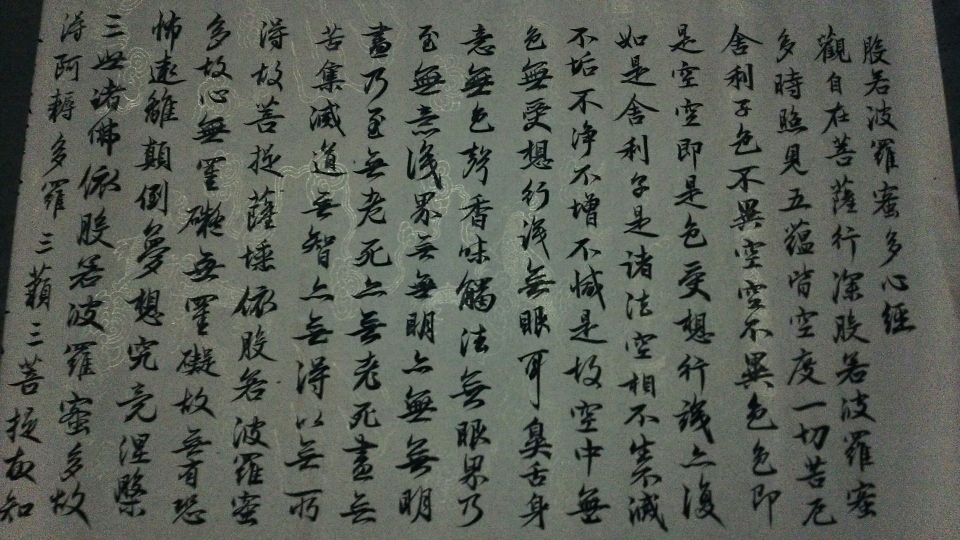 般若波羅蜜多心經
觀自在菩薩行深般若波羅蜜
多時照見五蘊皆空度一切苦厄
舍利子色不異空空不異色色即
是空空即是色受想行識亦復
如是舍利子是諸法空相不生不滅
不垢不淨不增不減是故空中無
色無受想行識無眼耳鼻舌身
意無色聲香味觸法無眼界乃
至無意識界無無明亦無無明
盡乃至無老死亦無老死盡無
苦集滅道無智亦無得以無所
得故菩提薩埵依般若波羅蜜
多故心無罣礙無罣礙故無有恐
怖遠離顛倒夢想究竟涅槃
三世諸佛依般若波羅蜜多故
得阿耨多羅三藐三菩提故知